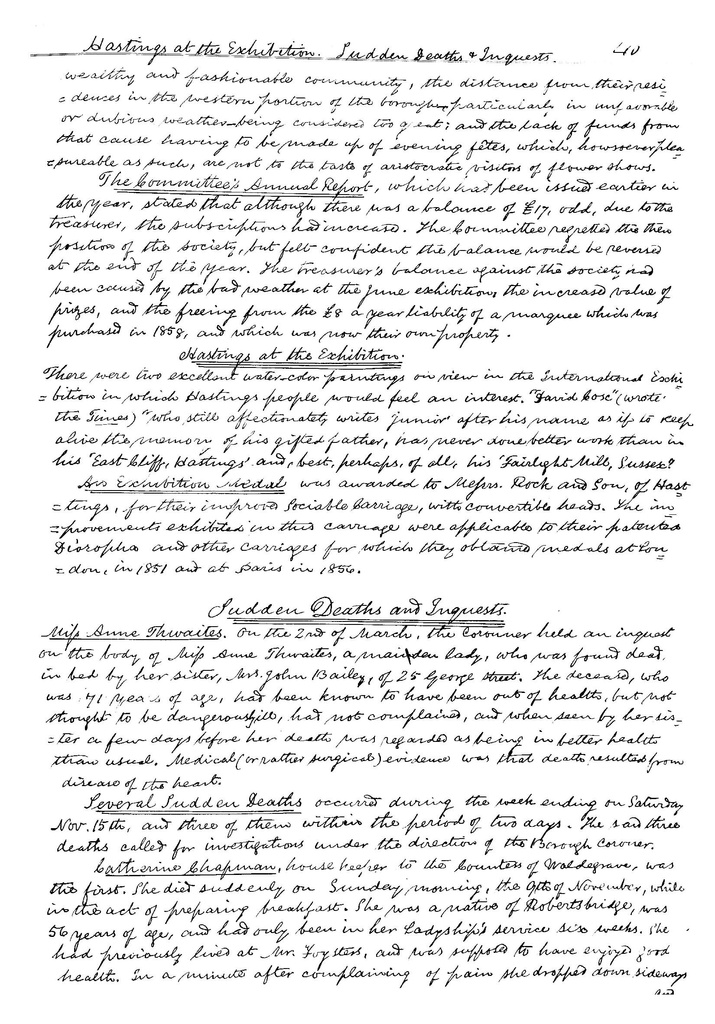 Hastings at the Exhibition. Sudden Deaths & Inquests. 40
wealthy and fashionable community, the distance from their resi-
=dences in the western portion of the borough, particularly in unfavorable
or dubious weather being considered too great; and the lack of funds from
that cause having to be made up of evening fêtes, which, howsoever plea
=sureable as such, are not to the taste of aristocratic visitors of flower shows.
The Committee's Annual Report, which had been issued earlier in
the year, stated that although there was a balance of £17, odd, due to the
treasurer, the subscriptions had increased. The Committee regretted the then
position of the society, but felt confident the balance would be reversed
at the end of the year. The treasurer's balance against the society had
been caused by the bad weather at the June exhibition, the increased value of
prizes, and the freeing from the £8 a year liability of a marquee which was
purchased in 1858, and which was now their own property.
Hastings at the Exhibition.
There were two excellent water-color paintings on view in the International Exhi
=bition in which Hastings people would feel an interest. "David Cox" (wrote
the Times) "who still affectionately writes 'junior' after his name as if to keep
alive the memory of his gifted father, has never done better work than in
his 'East Cliff, Hastings' and, best, perhaps, of all, his 'Fairlight Mill, Sussex'"
An Exhibition Medal was awarded to Messrs. Rock and Son, of Hast
=tings, for their improved Sociable Carriage, with convertible heads. The im
=provements exhibited in this carriage were applicable to their patented
Dioropha and other carriages for which they obtained medals at Lon
=don, in 1851 and at Paris in 1856.
Sudden Deaths and Inquests.
Miss Anne Thwaites. On the 2nd of March, the Coroner held an inquest
on the body of Miss Anne Thwaites, a maiden lady, who was found dead
in bed by her sister, Mrs. John Bailey, of 25 George street. The deceased, who
was 71 years of age, had been known to have been out of health, but not
thought to be dangerously ill, had not complained, and when seen by her sis-
=ter a few days before her death was regarded as being in better health
than usual. Medical (or rather surgical) evidence was that death resulted from
disease of the heart.
Several Sudden Deaths occurred during the week ending on Saturday
Nov. 15th, and three of them within the period of two days. The said three
deaths called for investigations under the direction of the Borough Coroner.
Catherine Chapman, house keeper to the Countess of Waldegrave, was
the first. She died suddenly on Sunday morning, the 9th of November, while
in the act of preparing breakfast. She was a native of Robertsbridge, was
56 years of age, and had only been in her Ladyship's service six weeks. She
had previously lived at Mr. Foysters, and was supposed to have enjoyed good
health. In a minute after complaining of pain she dropped down sideways
and